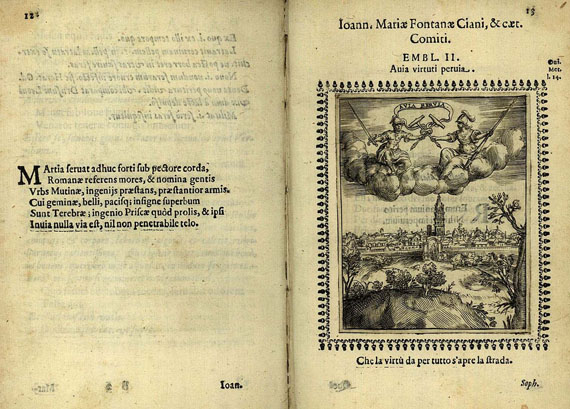 12
MArtia seruat adhuc forti sub pectore corda,
Romanæ referens mores, & nomina gentis
Vrbs Mutinæ, ingenijs præstans, præstantior armis.
Cui geminæ, belli, pacisq; insigne superbum
Sunt Terebræ; ingenio Priscæ quòd prolis, & ipsi
Inuia nulla via est, nil non penetrabile telo.
Ioan.
13
Ioann. Mariæ Fontanæ Ciani, & cæt.
Comiti.
EMBL. II.
Auia virtuti peruia.
Oui.
Met.
l. 14.
AVIA PERVIA
Che la virtù da per tutto s'apre la strada.
Soph.